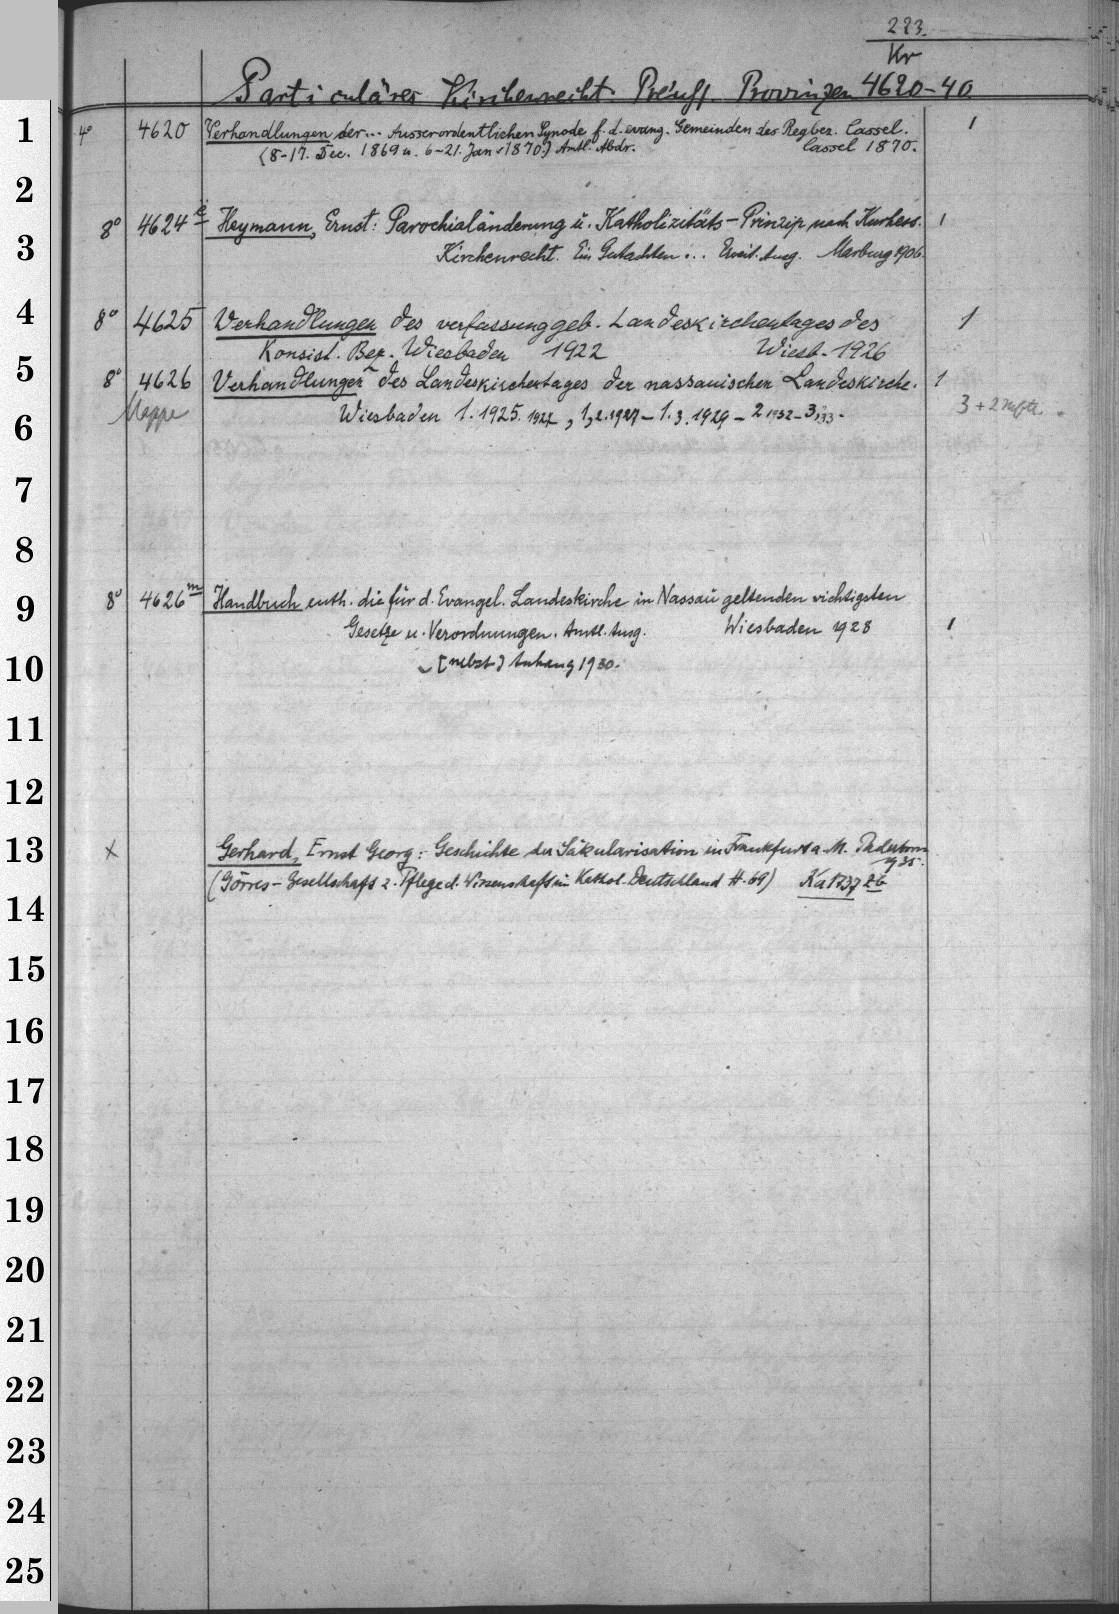 223.
Kr
Particuläres Kirchenrecht. Preuss. Provinzen 4620-40
1
4° 4620 Verhandlungen der... Ausserordentlichen Synode f. d. evang. Gemeinden des Reg bez. Cassel. 1
(8-17. Dec. 1869 u. 6-21. Jan. 1870.) Amtl. Abdr. Cassel 1870.
2
8° 4624 e Heymann, Ernst: Parochialänderung u. Katholizitäts-Prinzip nach Kurhess. 1
3
Kirchenrecht. Ein Gutachten... Erweit. Ausg. Marburg 1906.
4
8° 4625 Verhandlungen des verfassunggeb. Landeskirchentages des 1
Konsist. Bez. Wiesbaden 1922 Wiesb. 1926
5
8° 4626 Verhandlungen des Landeskirchentages der nassauischen Landeskirche. 1
Mappe Wiesbaden 1. 1925. 1927, 1,2.1927-1.3.1929-2 1932-3,33. 3+2
6
7
8
9
8° 4626 m Handbuch enth. die für d. Evangel. Landeskirche in Nassau geltenden wichtigsten
Gesetze u. Verordnungen. Amtl. Ausg. Wiesbaden 1928 1
10
[nebst] Anhang 1930.
11
12
13
x Gerhard, Ernst Georg: Geschichte der Säkularisation in Frankfurt a. M. Paderborn
1935.
(Görres-Gesellschaft z. Pflege d. Wissenschaft im Kathol. Deutschland H. 69) Ka 1737
14
15
16
17
18
19
20
21
22
23
24
25